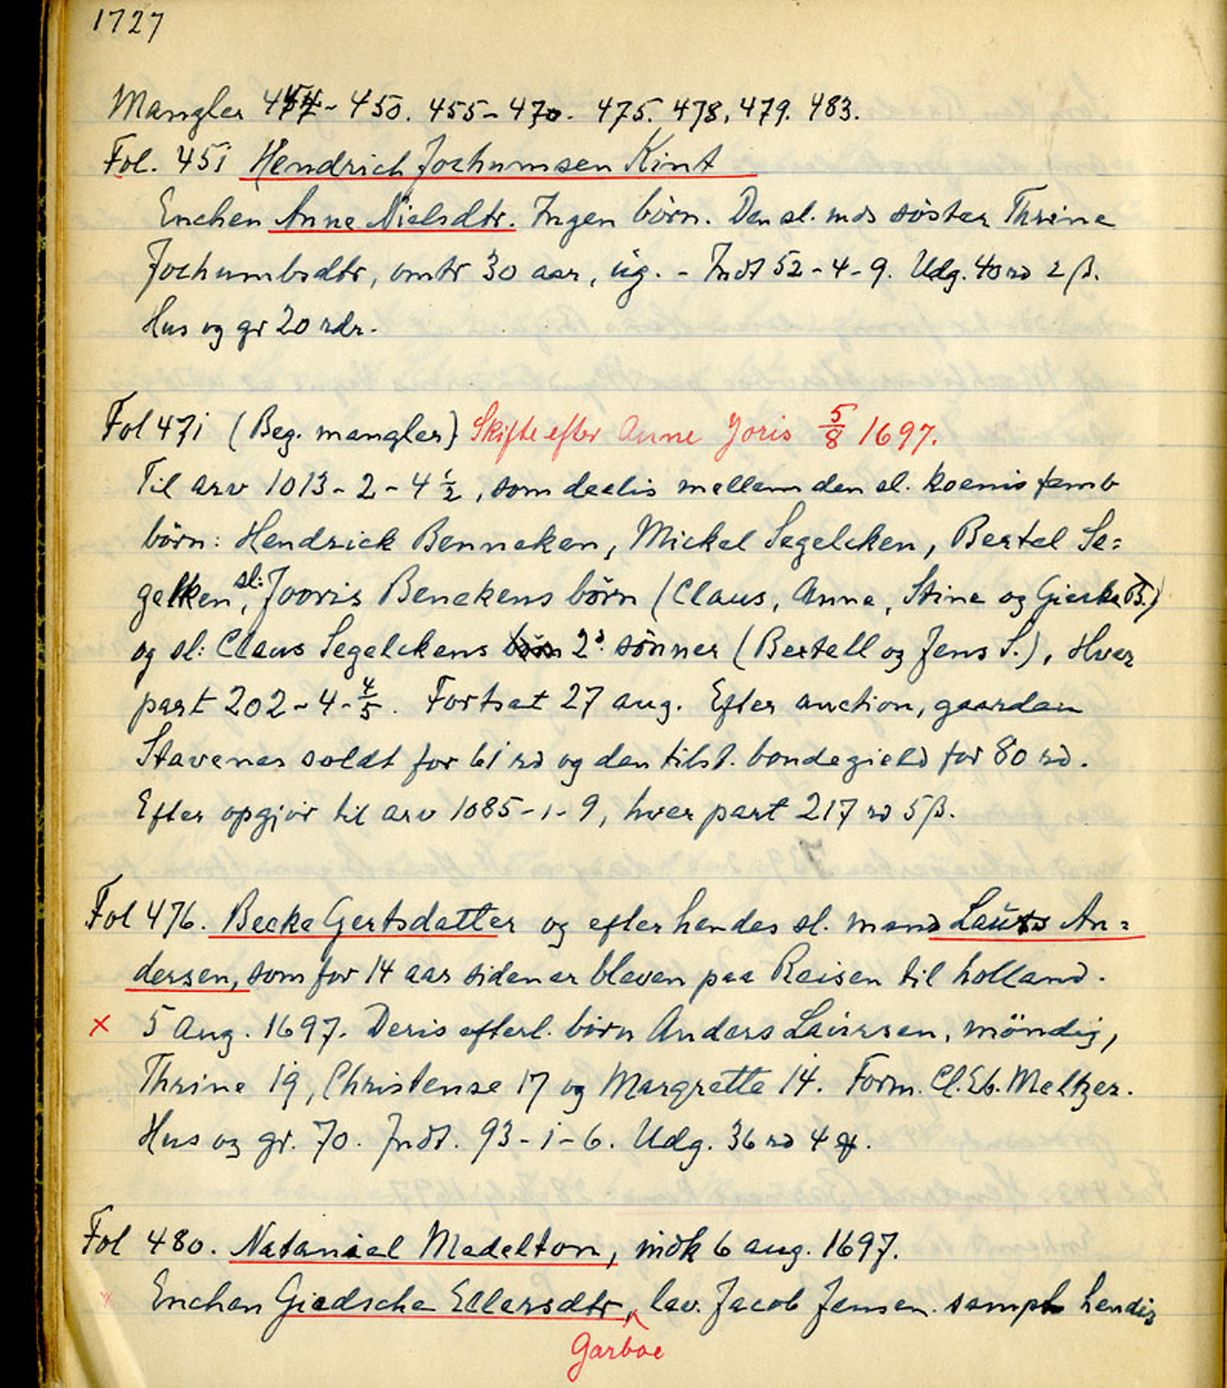 1727
Mangler 444 - 450. 455 - 470. 475. 478, 479. 483.
Fol. 451 Hendrich Jochumsen Kint
Enchen Anne Nielsdtr. Ingen børn. Den sl. mds søster Thrine
Jochumbsdtr, omtr 30 aar, ug. - Indt 52-4-9. Udg. 40 rd 2 β.
Hus og gr 20 rdr.
Fol 471 (Beg. mangler) Skifte efter Anne Joris 5/8 1697.
Til arv 1013-2-4 1/2, som deelis mellem den sl. koenis femb
børn: Hendrick Benneken, Mickel Segelcken, Bertel Se=
gelken, sl: Jooris Benekens børn (Claus, Anne, Stine og Gieske B.)
og sl: Claus Segelckens børn 2de sønner (Bertell og Jens S.), Hver
part 202-4-4/5. Fortsat 27 aug. Efter auction, gaarden
Stavenes soldt for 61 rd og den tilst. bondegield for 80 rd.
Efter opgjør til arv 1085-1-9, hver part 217 rd 5 β.
Fol 476. Becke Gertsdatter og efter hendes sl. mand Laurs An=
dersen, som for 14 aar siden er bleven paa Reisen til holland.
x 5 Aug. 1697. Deris efterl. børn Anders Laursen, møndig,
Thrine 19, Christense 17 og Margrette 14. Form. Cl. Eb. Meltzer.
Hus og gr. 70. Indt. 93-1-6. Udg. 36 rd 4 β.
Fol 480. Nataniel Medelton, indk 6 aug. 1697.
Enchen Giedsche Ellersdtr, lav. Jacob Jensen sampt hendis
Garboe